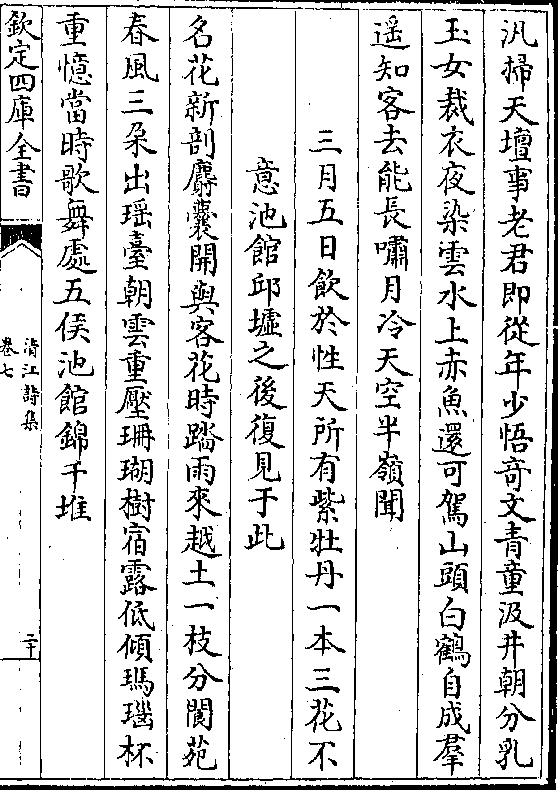 汎掃天壇事老君即從年少悟竒文青童汲井朝分乳
玉女裁衣夜染雲水上赤魚還可駕山頭白鶴自成羣
遥知客去能長嘯月冷天空半嶺聞
三月五日飲於性天所有紫牡丹一本三花不
意池館邱墟之後復見于此
名花新剖麝囊開與客花時踏雨來越土一枝分閬苑
春風三朶出瑶臺朝雲重壓珊瑚樹宿露低傾瑪瑙杯
重憶當時歌舞處五侯池館錦千堆
欽定四庫全書
清江詩集
卷七
二十